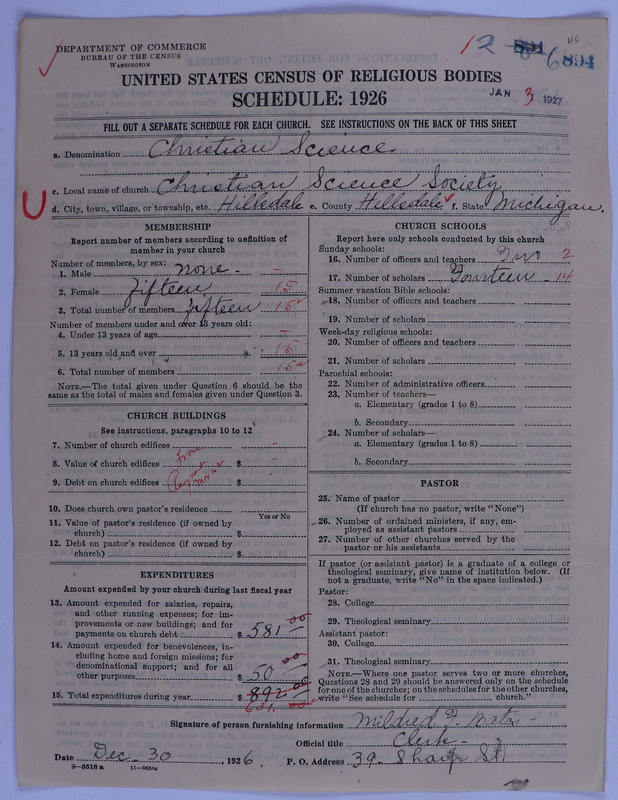 DEPARTMENT OF COMMERCE
BUREAU OF THE CENSUS
WASHINGTON
12 894 6894
UNITED STATES CENSUS OF RELIGIOUS BODIES
SCHEDULE: 1926
JAN 3 1927
FILL OUT A SEPARATE SCHEDULE FOR EACH CHURCH. SEE INSTRUCTIONS ON THE BACK OF THIS SHEET
a. Denomination Christian Science
c. Local name of church Christian Science Society
U d. City, town, village, or township, etc. Hillsdale e. County Hillsdale f. State Michigan.
MEMBERSHIP
Report number of members according to definition of
member in your church
Number of members, by sex:
1. Male none - –
2. Female fifteen 15
3. Total number of members fifteen 15
Number of members under and over 13 years old:
4. Under 13 years of age –
5. 13 years old and over 15
6. Total number of members 15
NOTE.—The total given under Question 6 should be the
same as the total of males and females given under Question 3.
CHURCH BUILDINGS
See instructions, paragraphs 10 to 12
7. Number of church edifices -
8. Value of church edifices $ -
9. Debt on church edifices $ -
10. Does church own pastor's residence
Yes or No
11. Value of pastor's residence (if owned by
church) $
12. Debt on pastor's residence (if owned by
church) $
EXPENDITURES
Amount expended by your church during last fiscal year
13. Amount expended for salaries, repairs,
and other running expenses; for im-
provements or new buildings; and for
payments on church debt $ 581 00
14. Amount expended for benevolences, in-
cluding home and foreign missions; for
denominational support; and for all
other purposes $ 50 00
15. Total expenditures during year $ 892 00
631. 00
CHURCH SCHOOLS
Report here only schools conducted by this church
Sunday schools:
16. Number of officers and teachers Two 2
17. Number of scholars Fourteen - 14
Summer vacation Bible schools:
18. Number of officers and teachers
19. Number of scholars
Week-day religious schools:
20. Number of officers and teachers
21. Number of scholars
Parochial schools:
22. Number of administrative officers
23. Number of teachers—
a. Elementary (grades 1 to 8)
b. Secondary
24. Number of scholars—
a. Elementary (grades 1 to 8)
b. Secondary
PASTOR
25. Name of pastor
(If church has no pastor, write "None")
26. Number of ordained ministers, if any, em-
ployed as assistant pastors
27. Number of other churches served by the
pastor or his assistants
If pastor (or assistant pastor) is a graduate of a college or
theological seminary, give name of institution below. (If
not a graduate, write "No" in the space indicated.)
Pastor:
28. College
29. Theological seminary
Assistant pastor:
30. College
31. Theological seminary
NOTE.—Where one pastor serves two or more churches,
Questions 28 and 29 should be answered only on the schedule
for one of the churches; on the schedules for the other churches,
write "See schedule for church."
Signature of person furnishing information Mildred
Official title Clerk -
Date Dec. 30, 1926. P. O. Address 39. Sharp St
8—5518 a 11—9054a